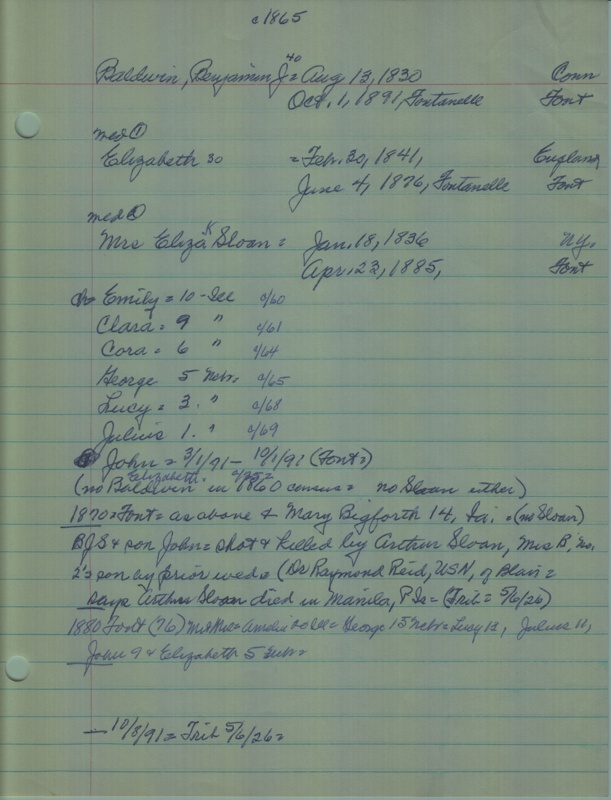 c1865
Baldwin, Benjamin J. 40 = Aug 13, 1830 Conn
Oct. 1, 1891, Fontanelle Font
med ①
Elizabeth 30 = Feb. 30, 1841, England
June 4, 1876, Fontanelle Font
med
Mrs Eliza K Sloan = Jan. 18, 1836 N.Y.
Apr. 23, 1885, Font
ch Emily = 10 - Ill c/60
Clara = 9 " c/61
Cora = 6 " c/64
George 5 Nebr. c/65
Lucy = 3. " c/68
Julius 1. " c/69
John = 3/1/91 - 10/1/91 (Font=)
Elizabeth. c/75=
(no Baldwin in 1860 census = no Sloan either)
1870 = Font = as above & Mary Bigforth 14, Ia. = (no Sloan)
BJS & son John = shot & killed by Arthur Sloan, Mrs B, no.
2's son by prior wed = (Dr Raymond Reid, USN, of Blair =
says Arthur Sloan died in Manila, P Is = (Trib = 5/6/26)
1880 Font (76) = George 15 Nebr = Lucy 12, Julius 11,
John 9 & Elizabeth 5 Nebr =
— 10/8/91 = Trib 5/6/26 =